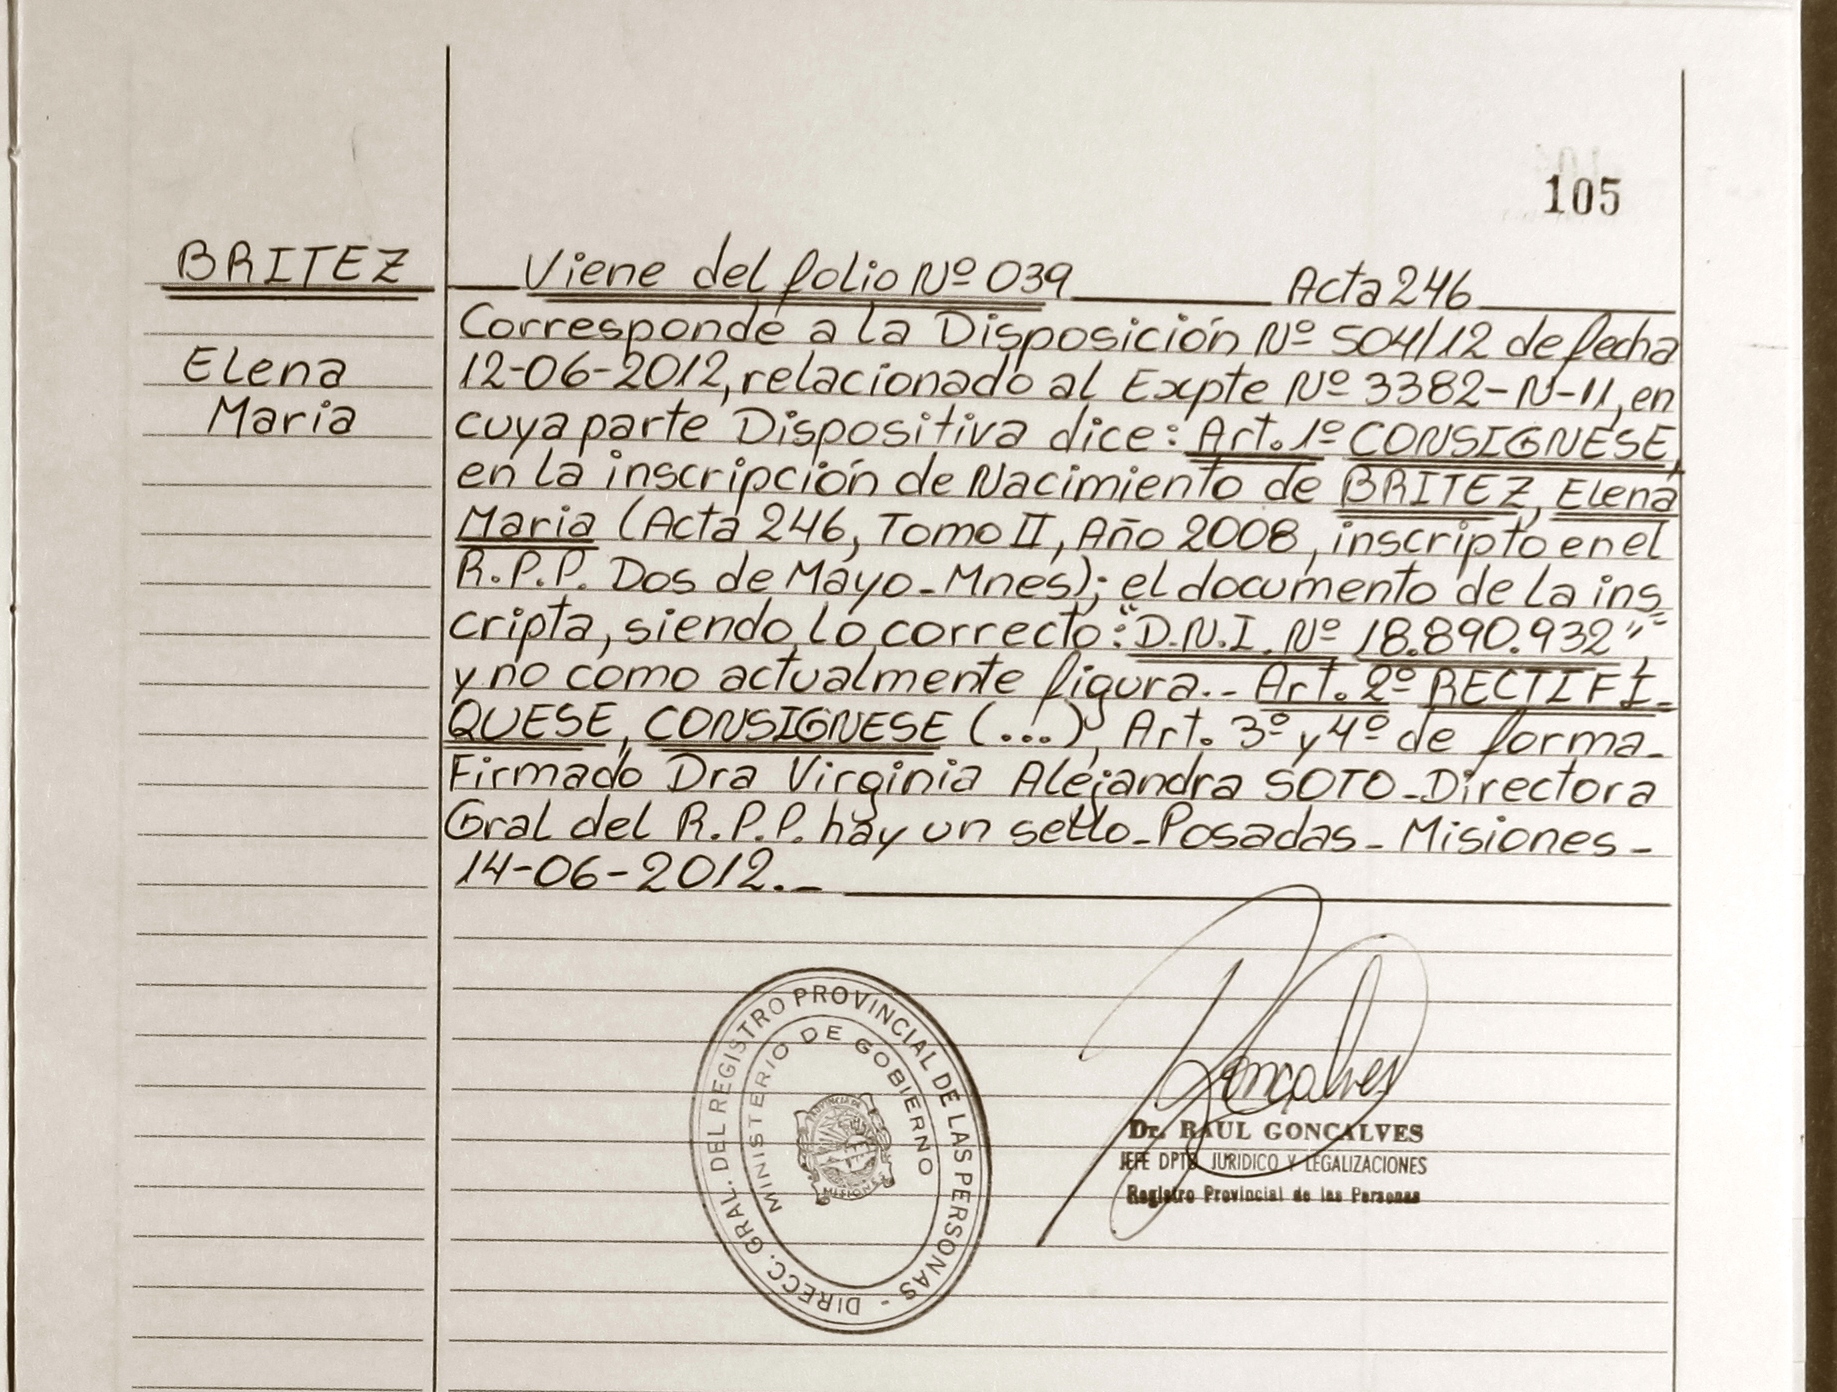 105
BRITEZ
Elena
Maria
Viene del folio Nº 039 Acta 246
Corresponde a la Disposición Nº 504/12 de fecha
12-06-2012, relacionado al Expte Nº 3382-N-11, en
cuya parte Dispositiva dice: Art. 1º CONSIGNESE,
en la inscripción de Nacimiento de BRITEZ, Elena
Maria (Acta 246, Tomo II, Año 2008, inscripto en el
R.P.P. Dos de Mayo-Mnes); el documento de la ins
cripta, siendo lo correcto: "D.N.I. Nº 18.890.932"
y no como actualmente figura.- Art. 2º RECTIFI-
QUESE, CONSIGNESE (...), Art. 3º y 4º de forma-
Firmado Dra Virginia Alejandra SOTO-Directora
Gral del R.P.P. hay un sello-Posadas-Misiones-
14-06-2012.-
DIRECC. GRAL. DEL REGISTRO PROVINCIAL DE LAS PERSONAS -
MINISTERIO DE GOBIERNO
PROVINCIA DE
MISIONES
Goncalves
Dr. RAUL GONCALVES
JEFE DPTO JURIDICO Y LEGALIZACIONES
Registro Provincial de las Personas